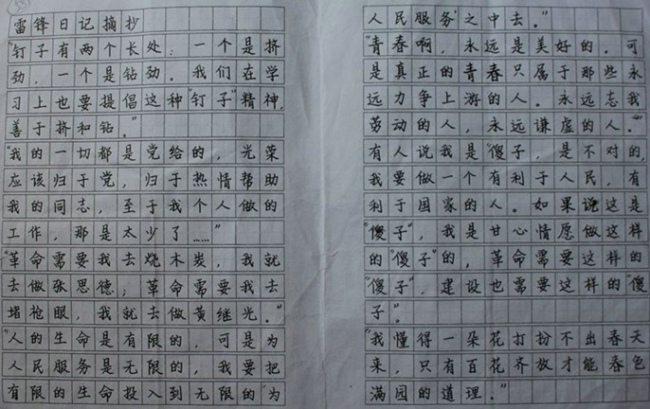 雷锋日记摘抄
"钉子有两个长处：一个是挤
劲，一个是钻劲。我们在学
习上也要提倡这种"钉子"精神，
善于挤和钻。"
"我的一切都是党给的，光荣
应该归于党，归于热情帮助
我的同志，至于我个人做的
工作，那是太少了……"
"革命需要我去烧木炭，我就
去做张思德；革命需要我去
堵枪眼，我就去做黄继光。"
"人的生命是有限的，可是为
人民服务是无限的，我要把
有限的生命投入到无限的"为
人民服务"之中去。"
"青春啊，永远是美好的。可
是真正的青春只属于那些永
远力争上游的人。永远忘我
劳动的人，永远谦虚的人。"
有人说我是"傻子，是不对的，
我要做一个有利于人民，有
利于国家的人。如果说这是
"傻子"，我是甘心情愿做这样
的"傻子"的，革命需要这样的
"傻子"，建设也需要这样的"傻
子"。
"我懂得一朵花打扮不出春天
来，只有百花齐放才能春色
满园的道理。"